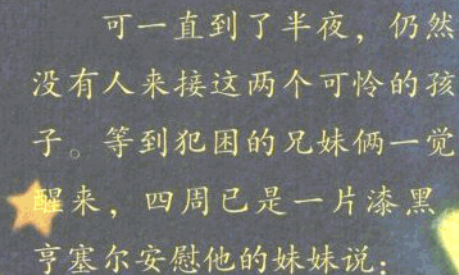 可一直到了半夜，仍然
没有人来接这两个可怜的孩
子。等到犯困的兄妹俩一觉
醒来，四周已是一片漆黑
亨塞尔安慰他的妹妹说：